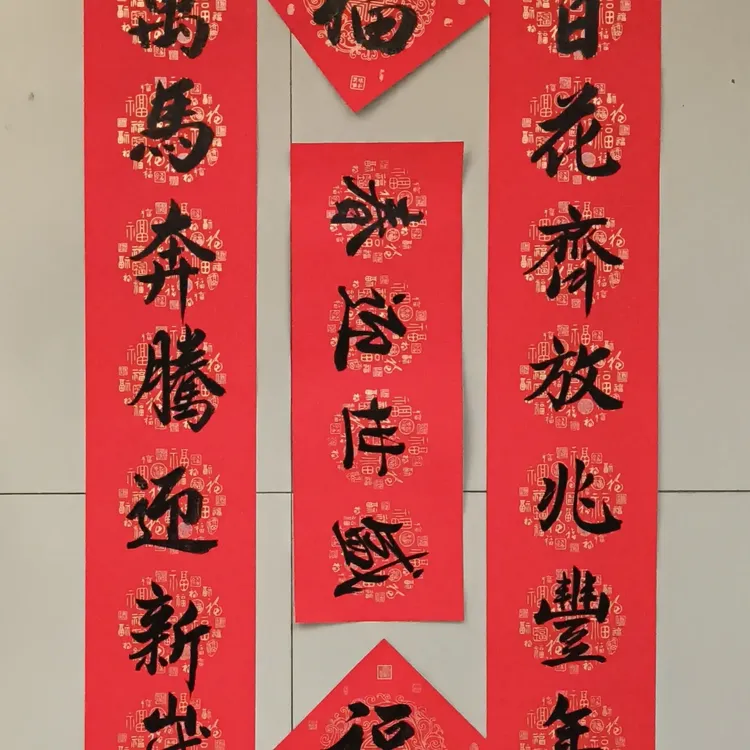 萬馬奔騰迎新
福
盛世迎春
福
百花齊放兆豐年